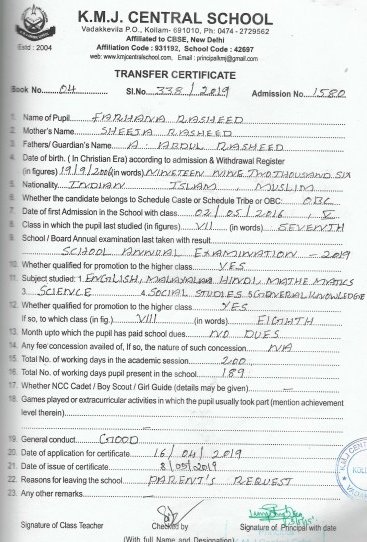 K.M.J. CENTRAL SCHOOL
Vadakkevila P.O., Kollam- 691010, Ph: 0474 - 2729562
Affiliated to CBSE, New Delhi
Estd : 2004
Affiliation Code : 931192, School Code : 42697
web: www.kmjcentralschool.com, Email : principalkmj@gmail.com
TRANSFER CERTIFICATE
Book No. 04 Sl.No. 338/2019 Admission No. 1580
1. Name of Pupil FARHANA RASHEED
2. Mother's Name SHEEJA RASHEED
3. Fathers/ Guardian's Name A. ABDUL RASHEED
4. Date of birth. ( In Christian Era) according to admission & Withdrawal Register
(in figures) 19/9/2006 (in words) NINETEEN NINE TWO THOUSAND SIX
5. Nationality INDIAN ISLAM, MUSLIM
6. Whether the candidate belongs to Schedule Caste or Schedule Tribe or OBC: OBC
7. Date of first Admission in the School with class 02/05/2016, V
8. Class in which the pupil last studied (in figures) VII (in words) SEVENTH
9. School / Board Annual examination last taken with result
SCHOOL ANNUAL EXAMINATION - 2019
10. Whether qualified for promotion to the higher class YES
11. Subject studied: 1. ENGLISH, MALAYALAM HINDI, MATHEMATICS
3. SCIENCE 4. SOCIAL STUDIES 5 GENERAL KNOWLEDGE
12. Whether qualified for promotion to the higher class YES
If so, to which class (in fig.) VIII (in words) EIGHTH
13. Month upto which the pupil has paid school dues NO DUES
14. Any fee concession availed of, If so, the nature of such concession NA
15. Total No. of working days in the academic session 200
16. Total No. of working days pupil present in the school 189
17. Whether NCC Cadet / Boy Scout / Girl Guide (details may be given) —
18. Games played or extracurricular activities in which the pupil usually took part (mention achievement
level therein) —
19. General conduct GOOD
20. Date of application for certificate 16/04/2019
21. Date of issue of certificate 8/05/2019
22. Reasons for leaving the school PARENT'S REQUEST
23. Any other remarks —
Signature of Class Teacher Checked by Signature of Principal with date
(With full Name and Designation)